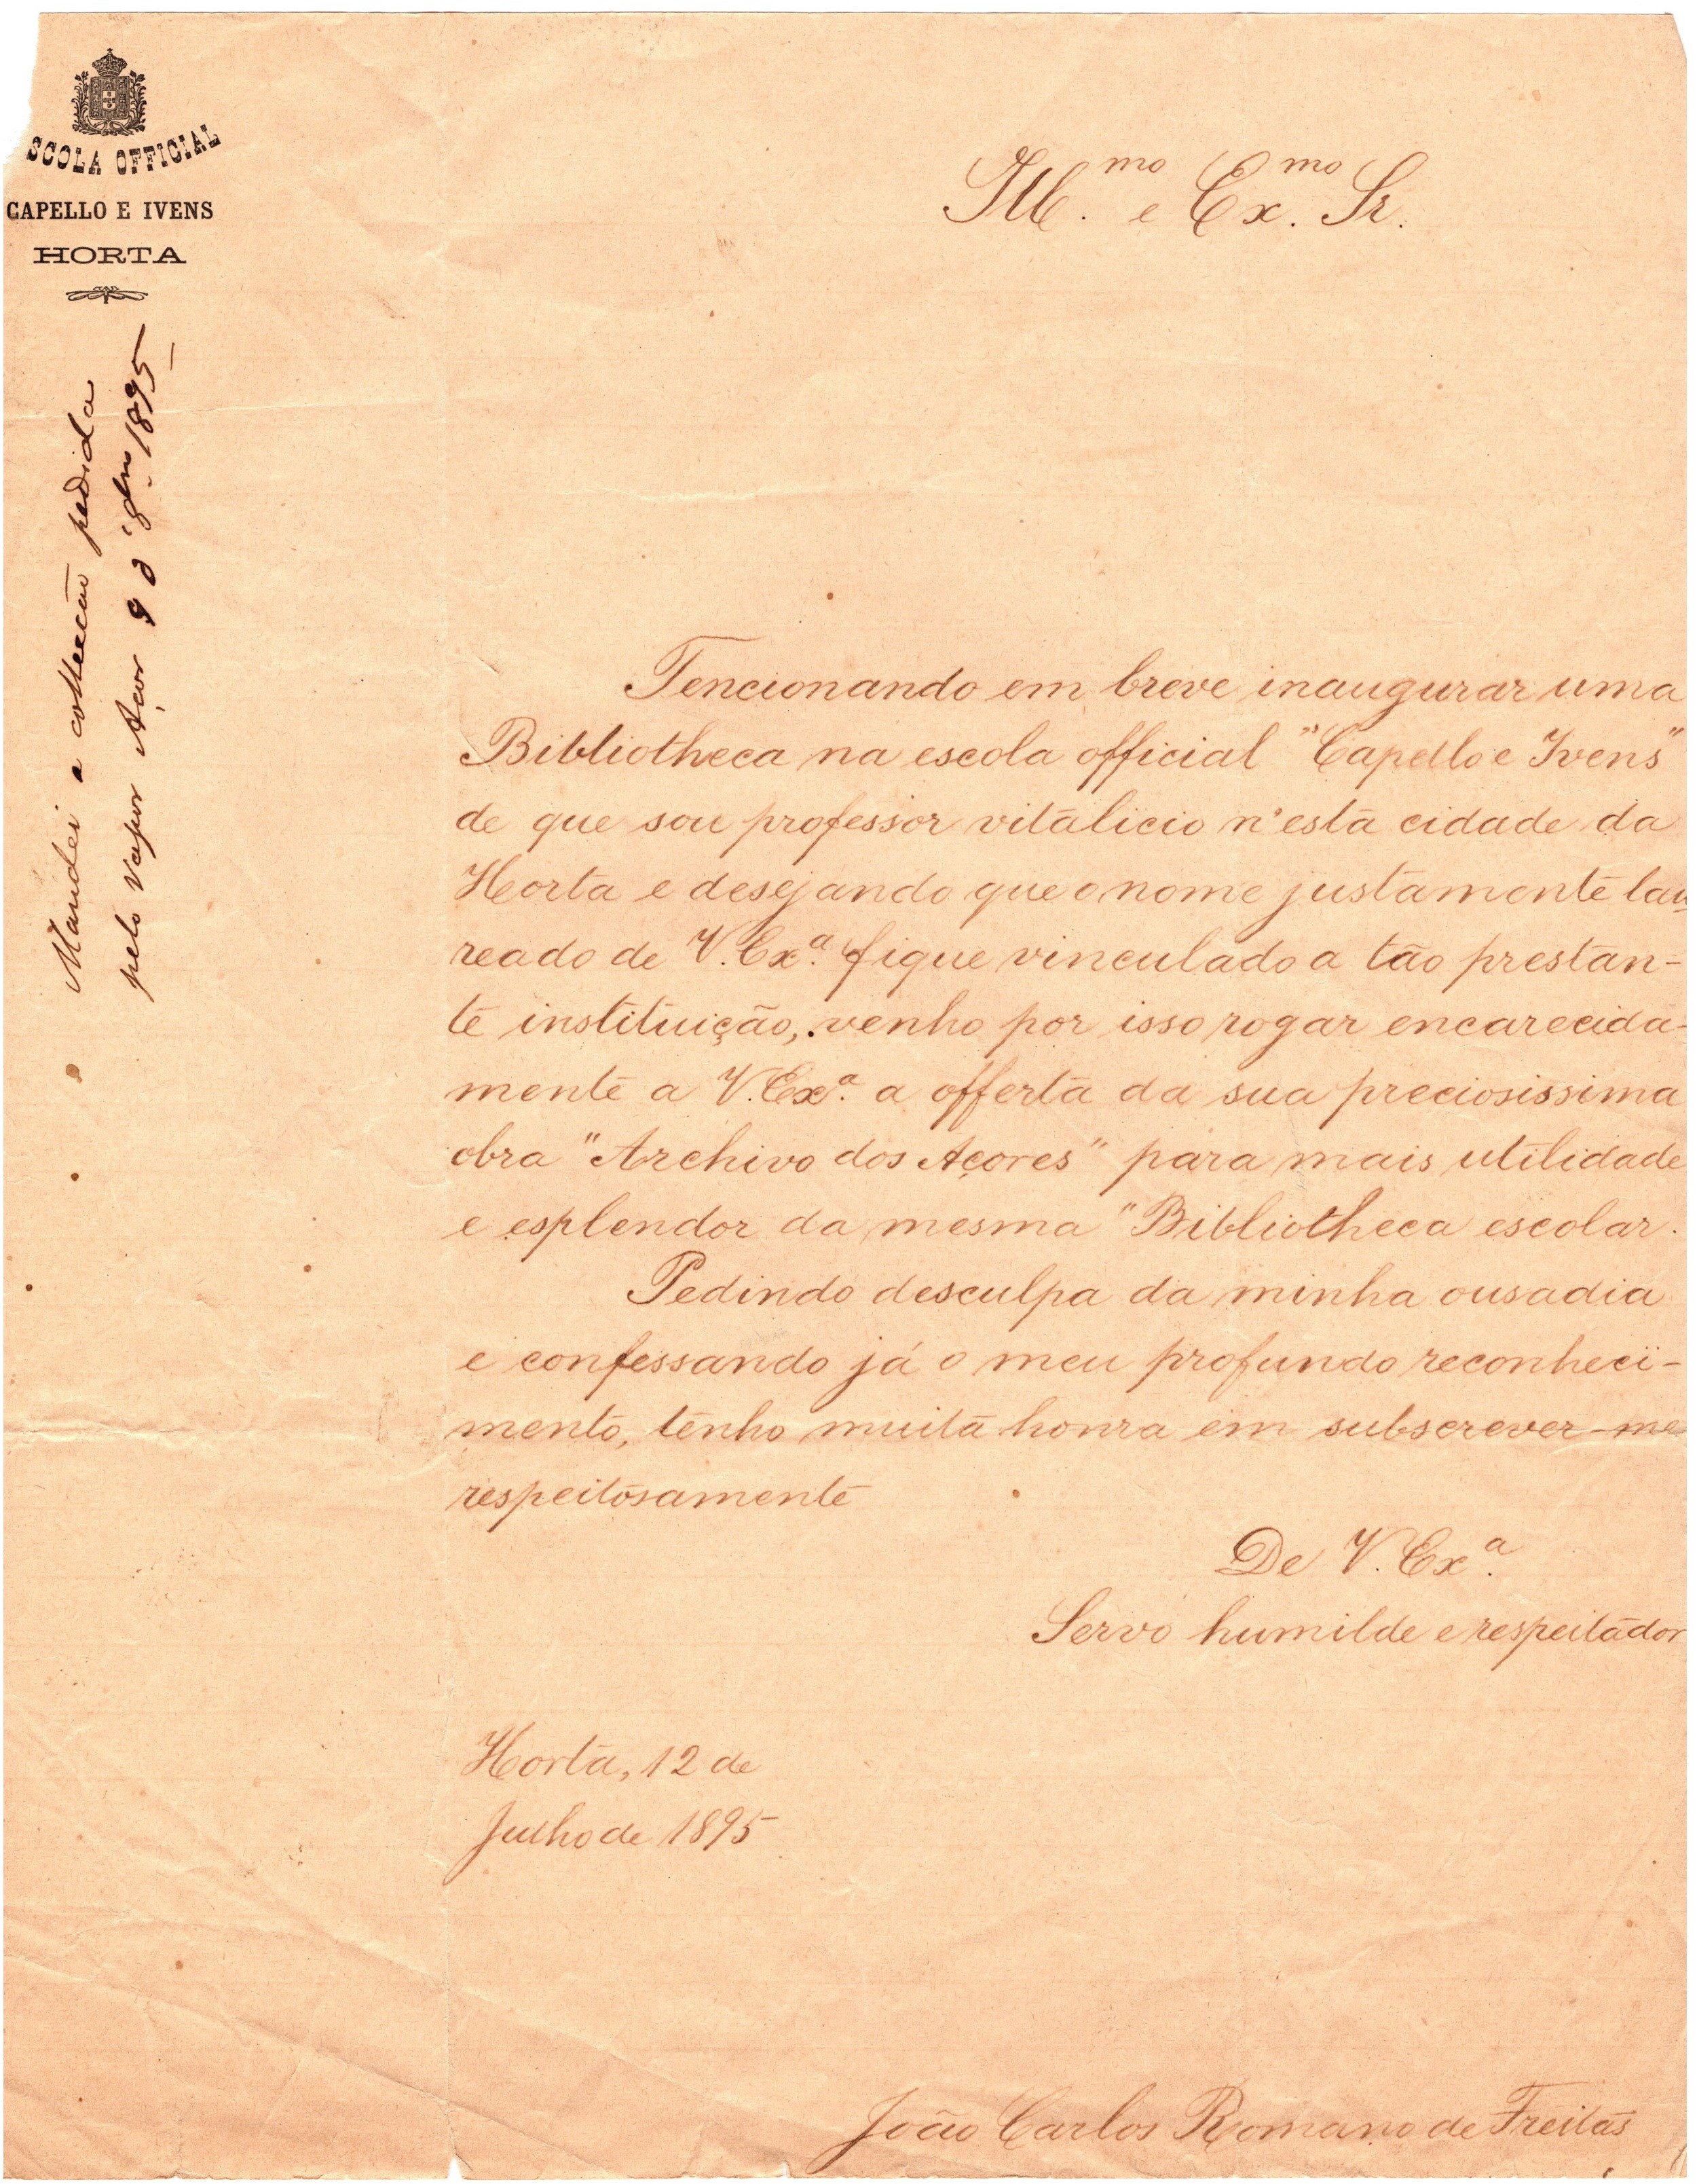 SCOLA OFFICIAL
CAPELLO E IVENS
HORTA
Mandei a collecção pedida
pelo vapor Açor 9 d' 8bro 1895
Ill.mo e Ex.mo Sr.
Tencionando em breve inaugurar uma
Bibliotheca na escola official "Capello e Ivens"
de que sou professor vitalicio n'esta cidade da
Horta e desejando que o nome justamente lau
reado de V. Ex.a fique vinculado a tão prestan-
te instituição, venho por isso rogar encarecida-
mente a V. Ex.a a offerta da sua preciosissima
obra "Archivo dos Açores" para mais utilidade
e esplendor da mesma "Bibliotheca escolar.
Pedindo desculpa da minha ousadia
e confessando já o meu profundo reconheci-
mento, tenho muita honra em subscrever-me
respeitosamente
De V. Ex.a
Servo humilde e respeitador
Horta, 12 de
Julho de 1895
João Carlos Romano de Freitas